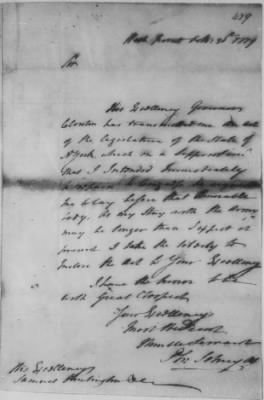 429
West Point Octbr 20th 1779
Sir
His Excellency Governor
Clinton has transmitted me an Act
of the Legislature of the State of
N York which on a Supposition
that I Intended Immediately
to repair to Congress
me to lay before that Honorable
body. As my Stay with the Army
may be longer than I expect at
present I take the liberty to
Inclose the Act to Your Excellency
I have the honor to be
with Great Respect
Your Excellency's
Most Obedient
Humble Servant
Ph: Schuyler
His Excellency
Samuel Huntington &c